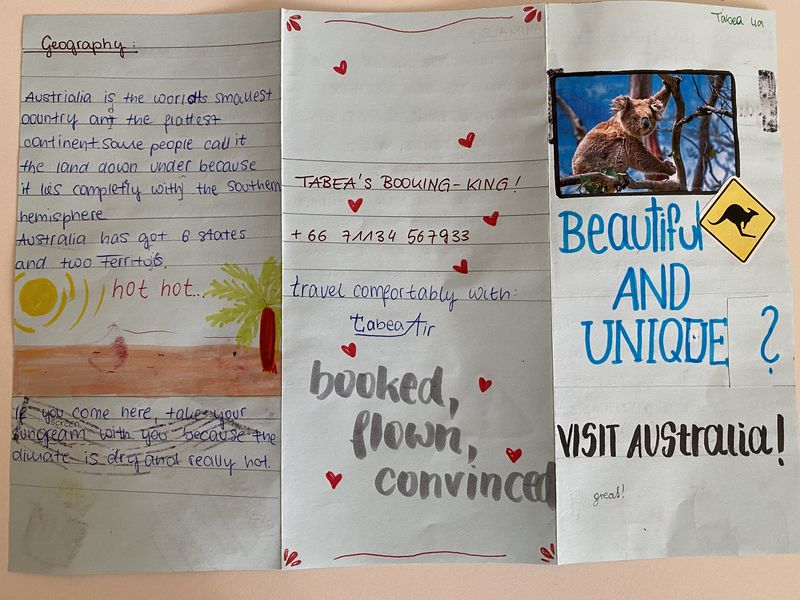 Geography:
Austrialia is the worldts smallest
country ant the flattest
continent. Some people call it
the land down under because
it las completly with the southern
hemisphere
Australia has got 6 states
and two Territois.
hot hot...
If you come here, take your
screen
sungream with you because the
climate is dry and really hot.
TABEA'S BOOKING-KING!
+66 71134 567933
travel comfortably with:
tabeaAir
booked,
flown,
convinced
Tabea 4a
Beautiful
AND
UNIQUE ?
VISIT AUStralia!
great!